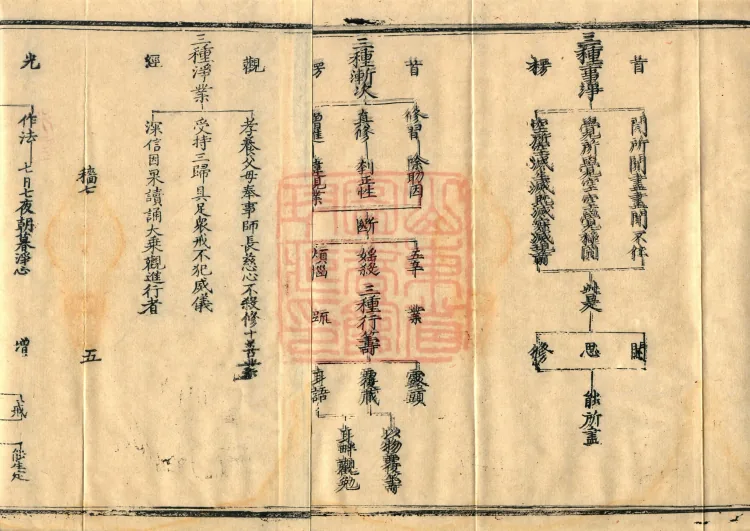 三種事淨
首 楞
聞所聞盡盡聞不住
覺所覺空空覺極圓
空所空滅生滅既滅寂滅
此是
聞 思 修
能所盡
三種漸次
首 楞
修習 除助因
真修 刳正性
增進 違現業
断
五辛 業
婬殺
煩惱 䟽
三種行籌
露頭
覆藏
耳語
以物覆籌
耳畔觀勉
三種淨業
觀 經
孝養父母奉事師長慈心不殺修十善業
受持三歸具足衆戒不犯威儀
深信因果讀誦大乘觀進行者
五
光 增
作法
七月七夜朝暮淨心
戒